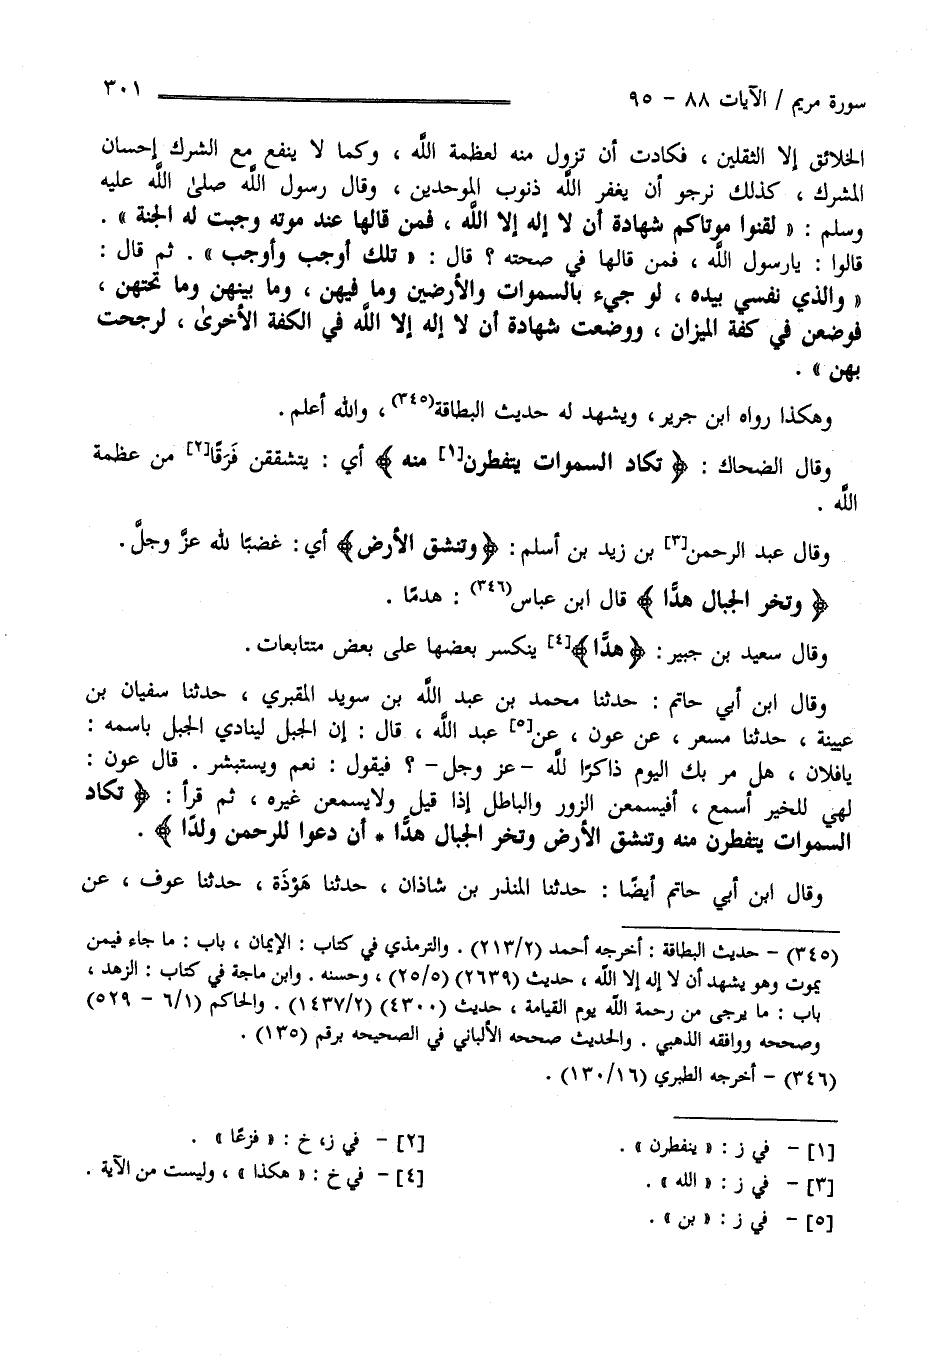 سورة مريم / الآيات ٨٨ - ٩٥ ٣٠١
الخلائق إلا الثقلين ، فكادت أن تزول منه لعظمة اللَّه ، وكما لا ينفع مع الشرك إحسان
المشرك ، كذلك نرجو أن يغفر اللَّه ذنوب الموحدين ، وقال رسول اللَّه صلىٰ اللَّه عليه
وسلم : « لقنوا موتاكم شهادة أن لا إله إلا اللَّه ، فمن قالها عند موته وجبت له الجنة » .
قالوا : يارسول اللَّه ، فمن قالها في صحته ؟ قال : « تلك أوجب وأوجب » . ثم قال :
« والذي نفسي بيده ، لو جيء بالسموات والأرضين وما فيهن ، وما بينهن وما تحتهن ،
فوضعن في كفة الميزان ، ووضعت شهادة أن لا إله إلا اللَّه في الكفة الأخرىٰ ، لرجحت
بهن » .
وهكذا رواه ابن جرير، ويشهد له حديث البطاقة(٣٤٥) ، والله أعلم.
وقال الضحاك : ﴿ تكاد السموات يتفطرن[١] منه ﴾ أي : يتشققن فَرَقًا[٢] من عظمة
اللَّه .
وقال عبد الرحمن[٣] بن زيد بن أسلم: ﴿وتنشق الأرض﴾ أي: غضبًا لله عزَّ وجلَّ.
﴿ وتخر الجبال هدًّا ﴾ قال ابن عباس(٣٤٦) : هدمًا .
وقال سعيد بن جبير: ﴿هدًّا﴾[٤] ينكسر بعضها على بعض متتابعات.
وقال ابن أبي حاتم : حدثنا محمد بن عبد اللَّه بن سويد المقبري ، حدثنا سفيان بن
عيينة ، حدثنا مسعر ، عن عون ، عن[٥] عبد اللَّه ، قال : إن الجبل لينادي الجبل باسمه :
يافلان ، هل مر بك اليوم ذاكرًا للَّه -عز وجل- ؟ فيقول : نعم ويستبشر . قال عون :
لهي للخير أسمع ، أفيسمعن الزور والباطل إذا قيل ولايسمعن غيره ، ثم قرأ : ﴿ تكاد
السموات يتفطرن منه وتنشق الأرض وتخر الجبال هدًّا * أن دعوا للرحمن ولدًا ﴾ .
وقال ابن أبي حاتم أيضًا : حدثنا المنذر بن شاذان ، حدثنا هَوْذَة ، حدثنا عوف ، عن
(٣٤٥) - حديث البطاقة : أخرجه أحمد (٢١٣/٢) . والترمذي في كتاب : الإيمان ، باب : ما جاء فيمن
يموت وهو يشهد أن لا إله إلا اللَّه ، حديث (٢٦٣٩) (٢٥/٥) ، وحسنه . وابن ماجة في كتاب : الزهد ،
باب : ما يرجى من رحمة اللَّه يوم القيامة ، حديث (٤٣٠٠) (١٤٣٧/٢) . والحاكم (٦/١ - ٥٢٩)
وصححه ووافقه الذهبي . والحديث صححه الألباني في الصحيحه برقم (١٣٥) .
(٣٤٦) - أخرجه الطبري (١٣٠/١٦) .
[١] - في ز : « ينفطرن » . [٢] - في ز، خ : « فزعًا » .
[٣] - في ز : « الله » . [٤] - في خ : « هكذا » ، وليست من الآية .
[٥] - في ز : « بن » .